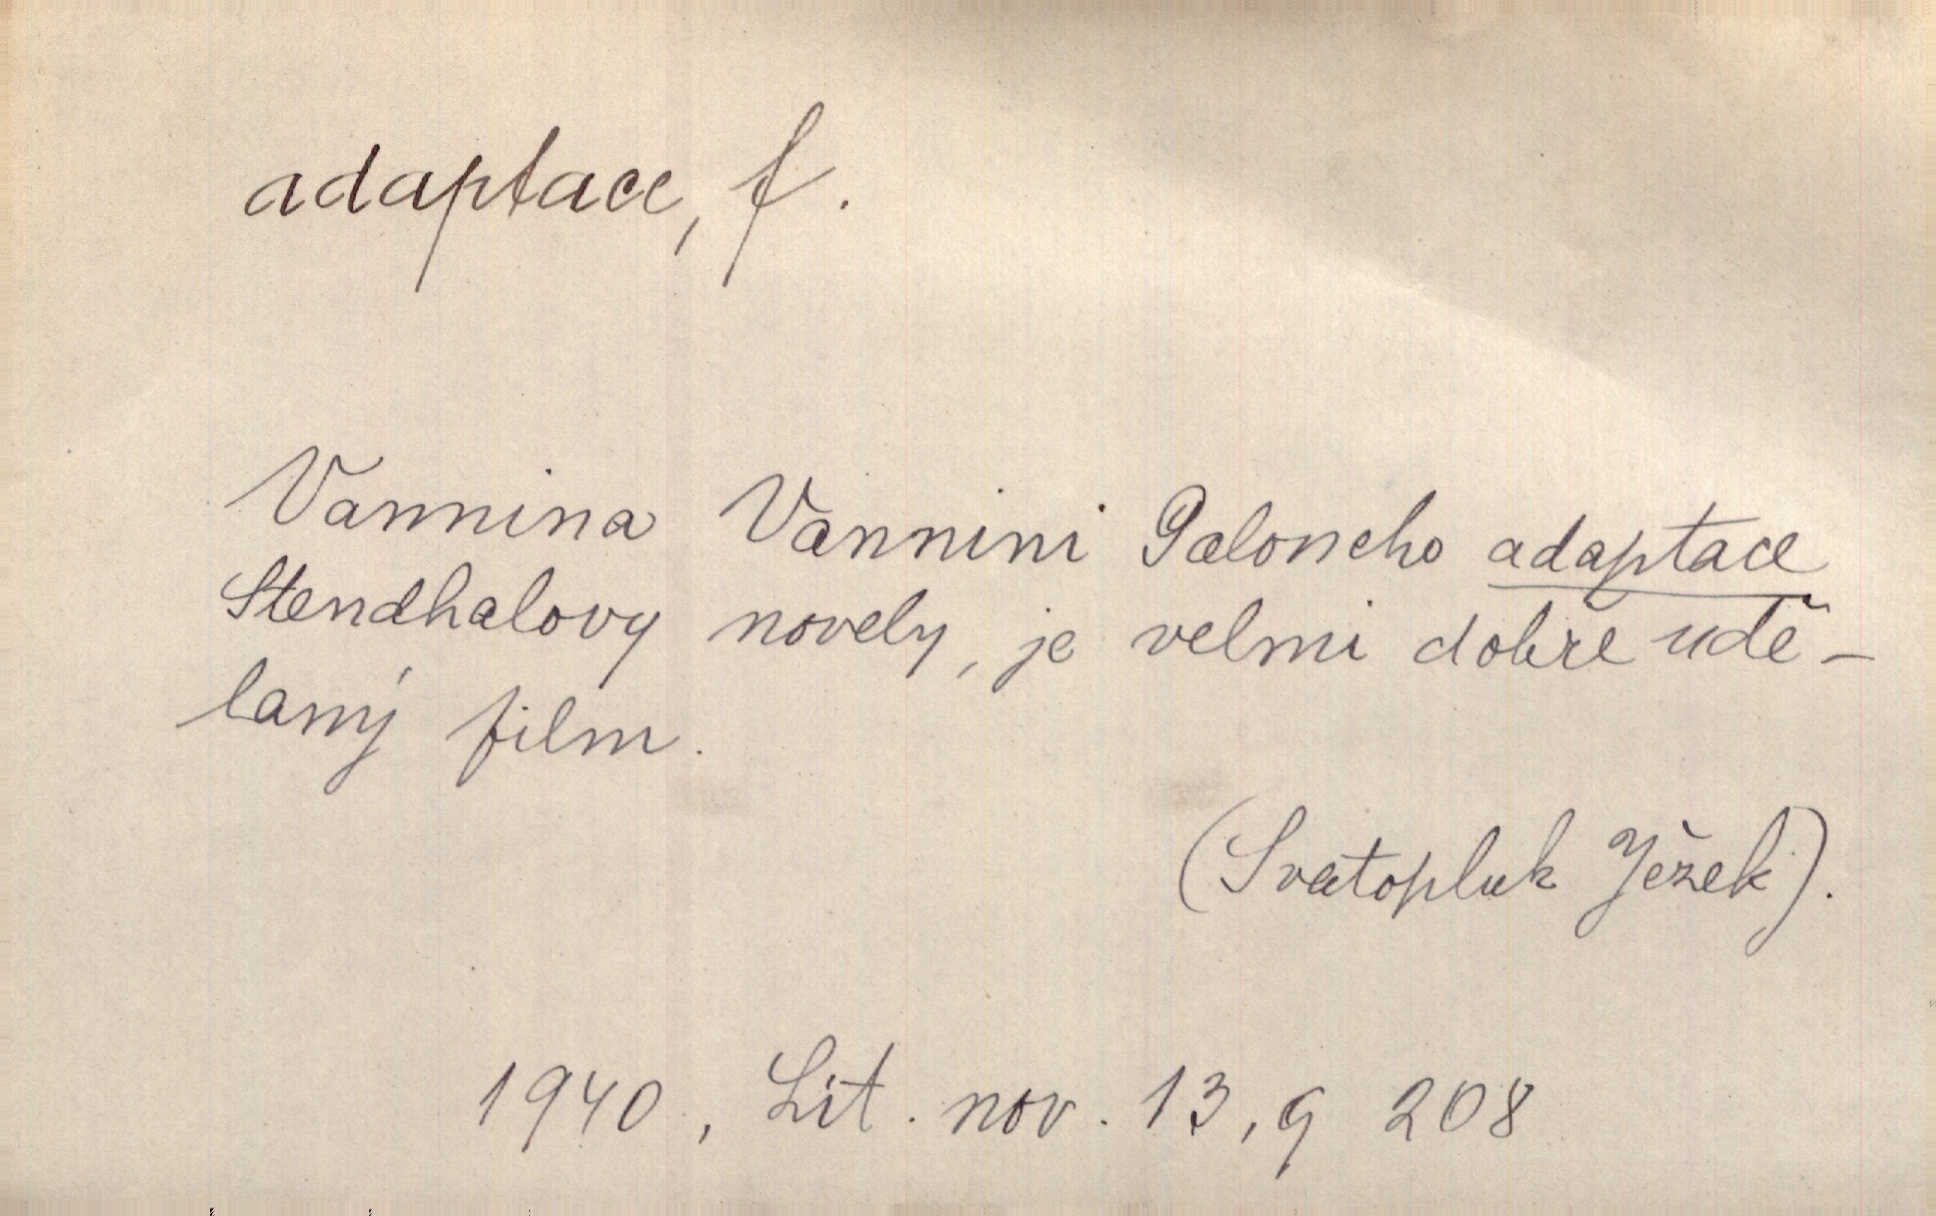 adaptace, f.
Vannina Vannini Paloneho adaptace
Stendhalovy novely, je velmi dobře udě-
laný film.
(Svatopluk Ježek).
1940, Lit. nov. 13, 9 208